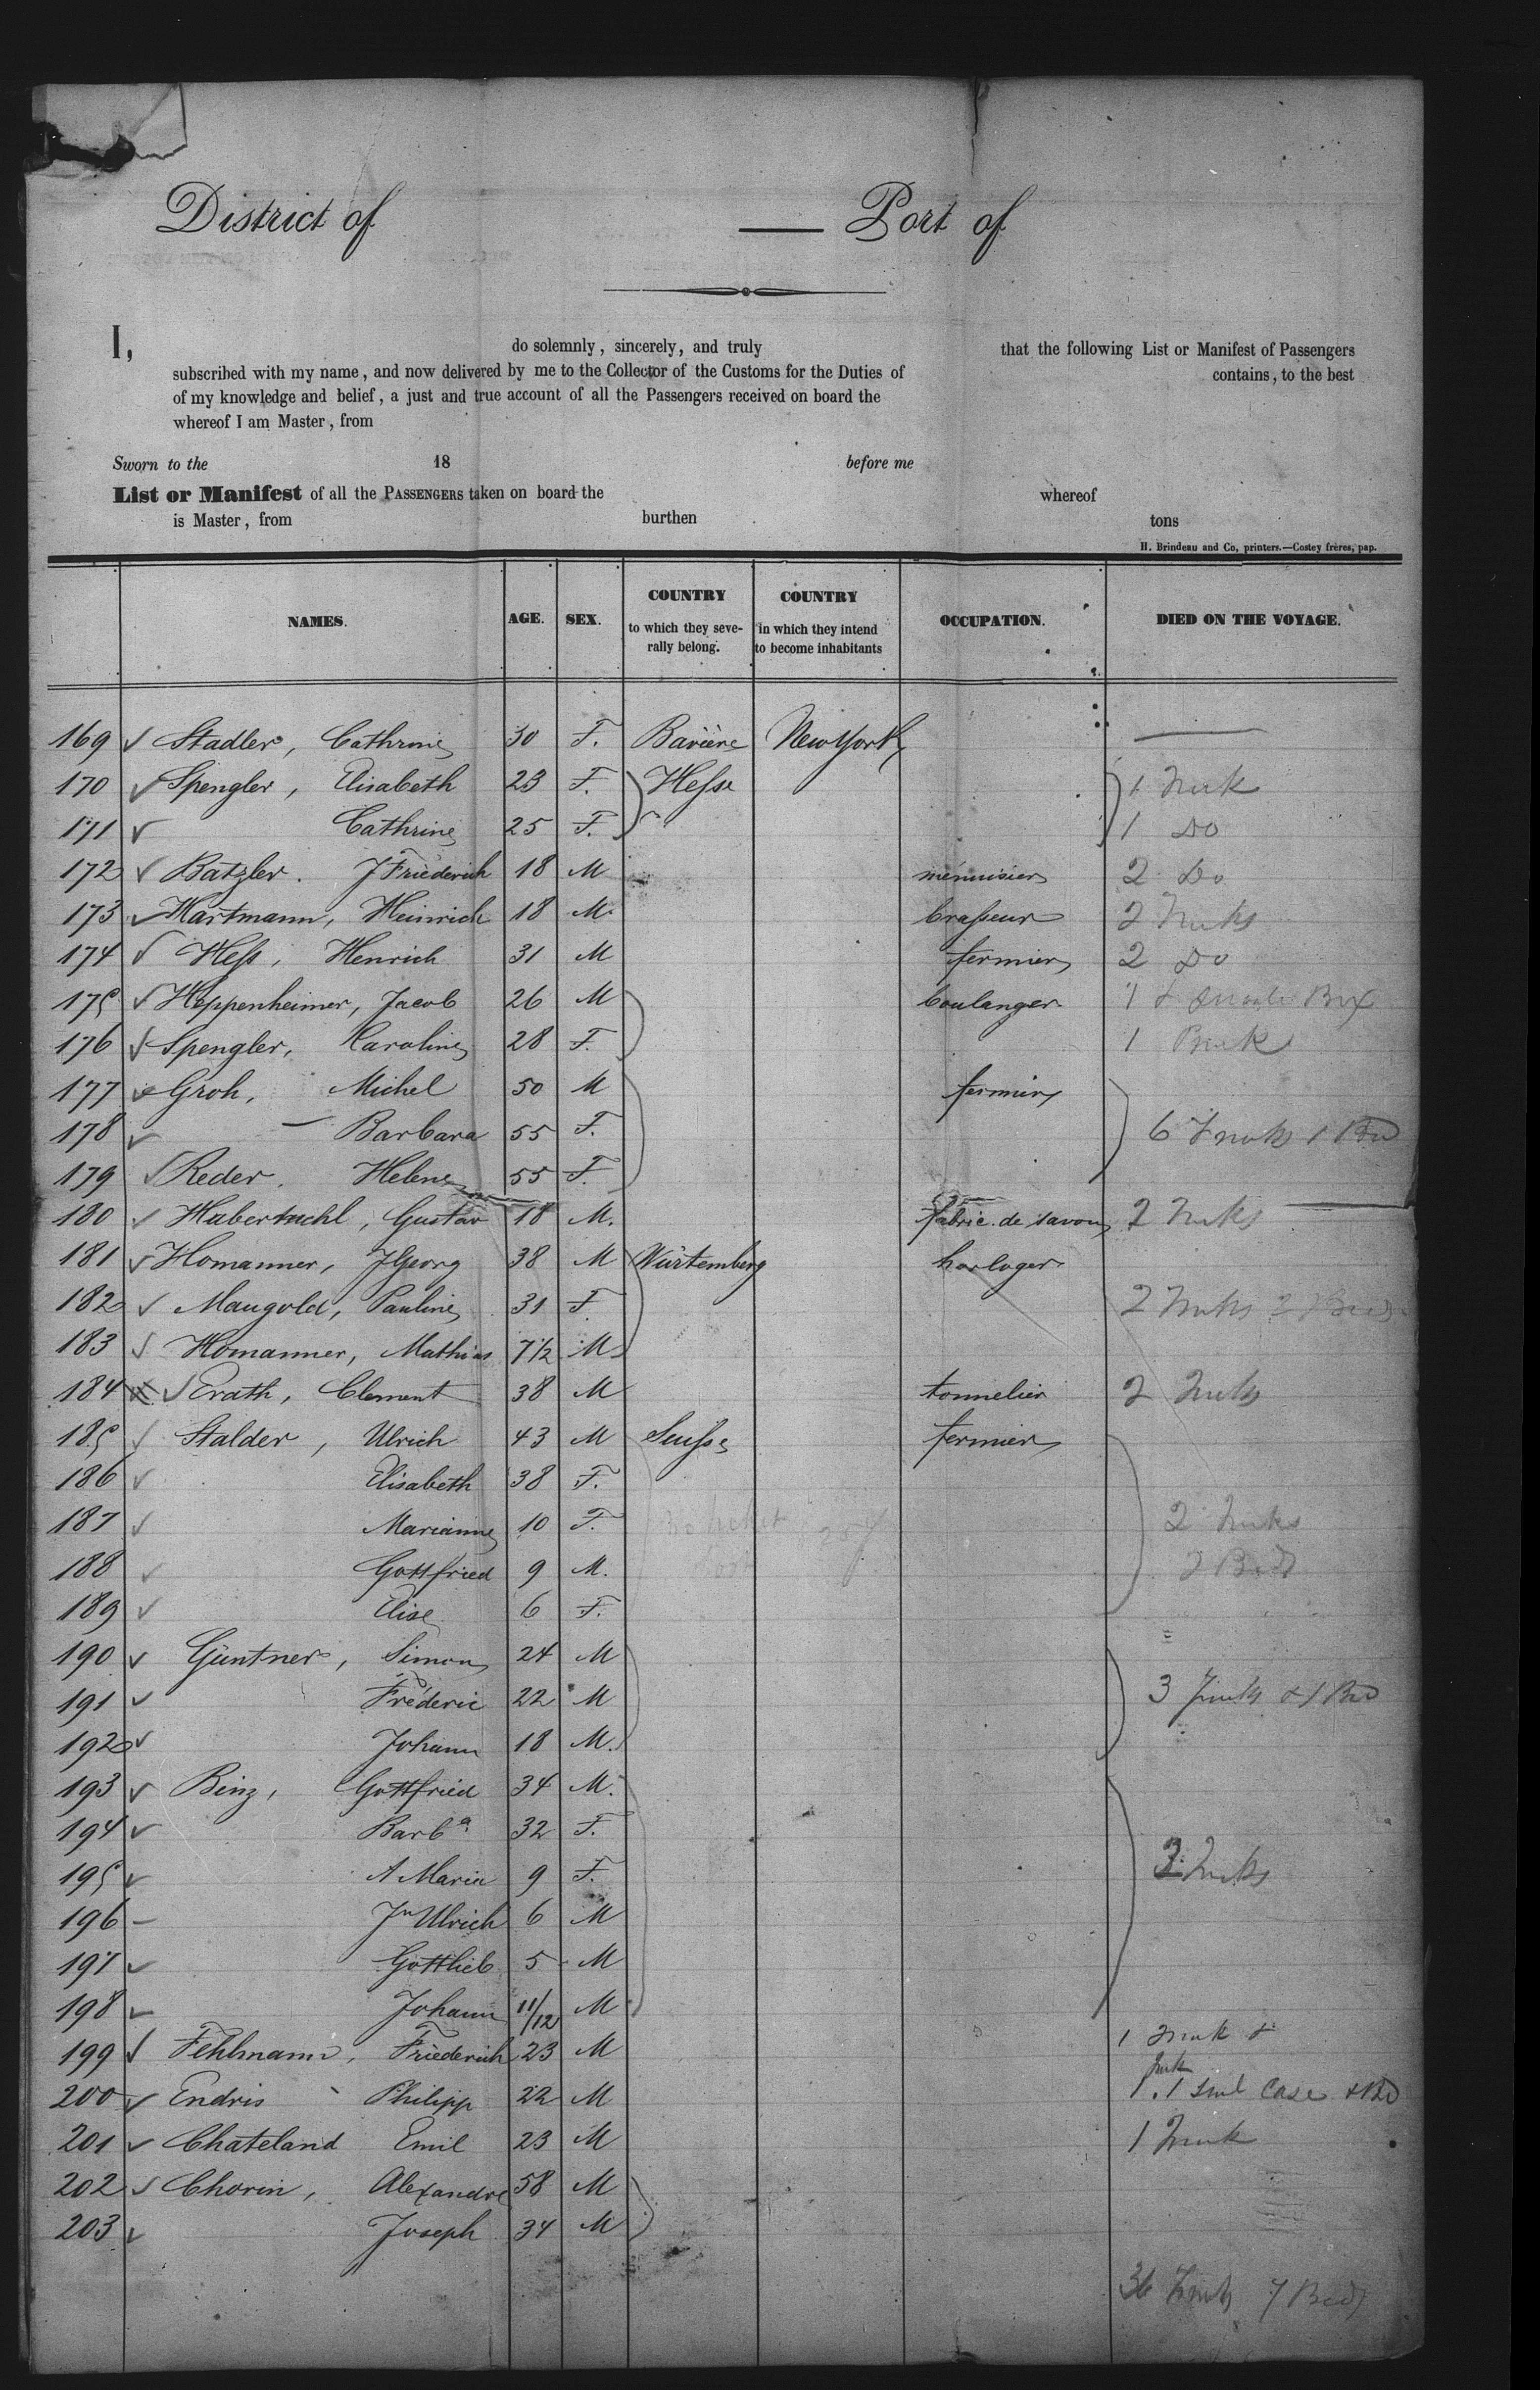 District of — Port of
I, do solemnly, sincerely, and truly that the following List or Manifest of Passengers
subscribed with my name, and now delivered by me to the Collector of the Customs for the Duties of contains, to the best
of my knowledge and belief, a just and true account of all the Passengers received on board the
whereof I am Master, from
Sworn to the 18 before me
List or Manifest of all the PASSENGERS taken on board the whereof
is Master, from burthen tons
H. Brindeau and Co, printers.—Costey frères, pap.
NAMES. AGE. SEX. COUNTRY to which they seve- rally belong. COUNTRY in which they intend to become inhabitants OCCUPATION. DIED ON THE VOYAGE.
169 Stadler, Cathrine 30 F. Bavière New York
170 Spengler, Elisabeth 23 F. Hesse 1 Trunk
171 Cathrine 25 F. 1 Do
172 Batzler. J Friederich 18 M menuisier 2 Do
173 Hartmann, Heinrich 18 M. brasseur 2 Trunks
174 Hess, Henrich 31 M fermier 2 Do
175 Heppenheimer, Jacob 26 M boulanger 1 & Box
176 Spengler, Caroline 28 F. 1
177 Groh, Michel 50 M fermier
178 — Barbara 55 F. 6 Trunks 1 Bed
179 Reder. Helene 55 F.
180 Gustav 18 M. fabric. de savon 2 Trunks
181 Homanner, J Georg 38 M Würtemberg horloger
182 Maugold, Pauline 31 F 2 Trunks 2 Beds
183 Homanner, Mathias 7½ M
184 Erath, Clement 38 M tonnelier 2 Trunks
185 Stalder, Ulrich 43 M Suisse fermier
186 Elisabeth 38 F.
187 Marianne 10 F. 2 Trunks
188 Gottfried 9 M. 2 Beds
189 Elise 6 F.
190 Güntner, Simon 24 M
191 Fréderic 22 M 3 Trunks & 1 Bed
192 Johann 18 M.
193 Binz, Gottfried 34 M.
194 Barbª 32 F.
195 A Maria 9 F. 3 Trunks
196 Jn Ulrich 6 M
197 Gottlieb 5 M
198 Johann 11/12 M
199 Fehlmann, Friederich 23 M 1 Trunk &
200 Endris Philipp 22 M 1 Trunk. 1 Case & Bed
201 Chateland Emil 23 M 1 Trunk
202 Chorin, Alexandre 58 M
203 Joseph 34 M
36 Trunks 7 Beds